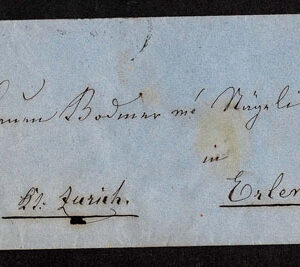 Bodmer né Nägeli
in
Kt: Zurich. Erlen